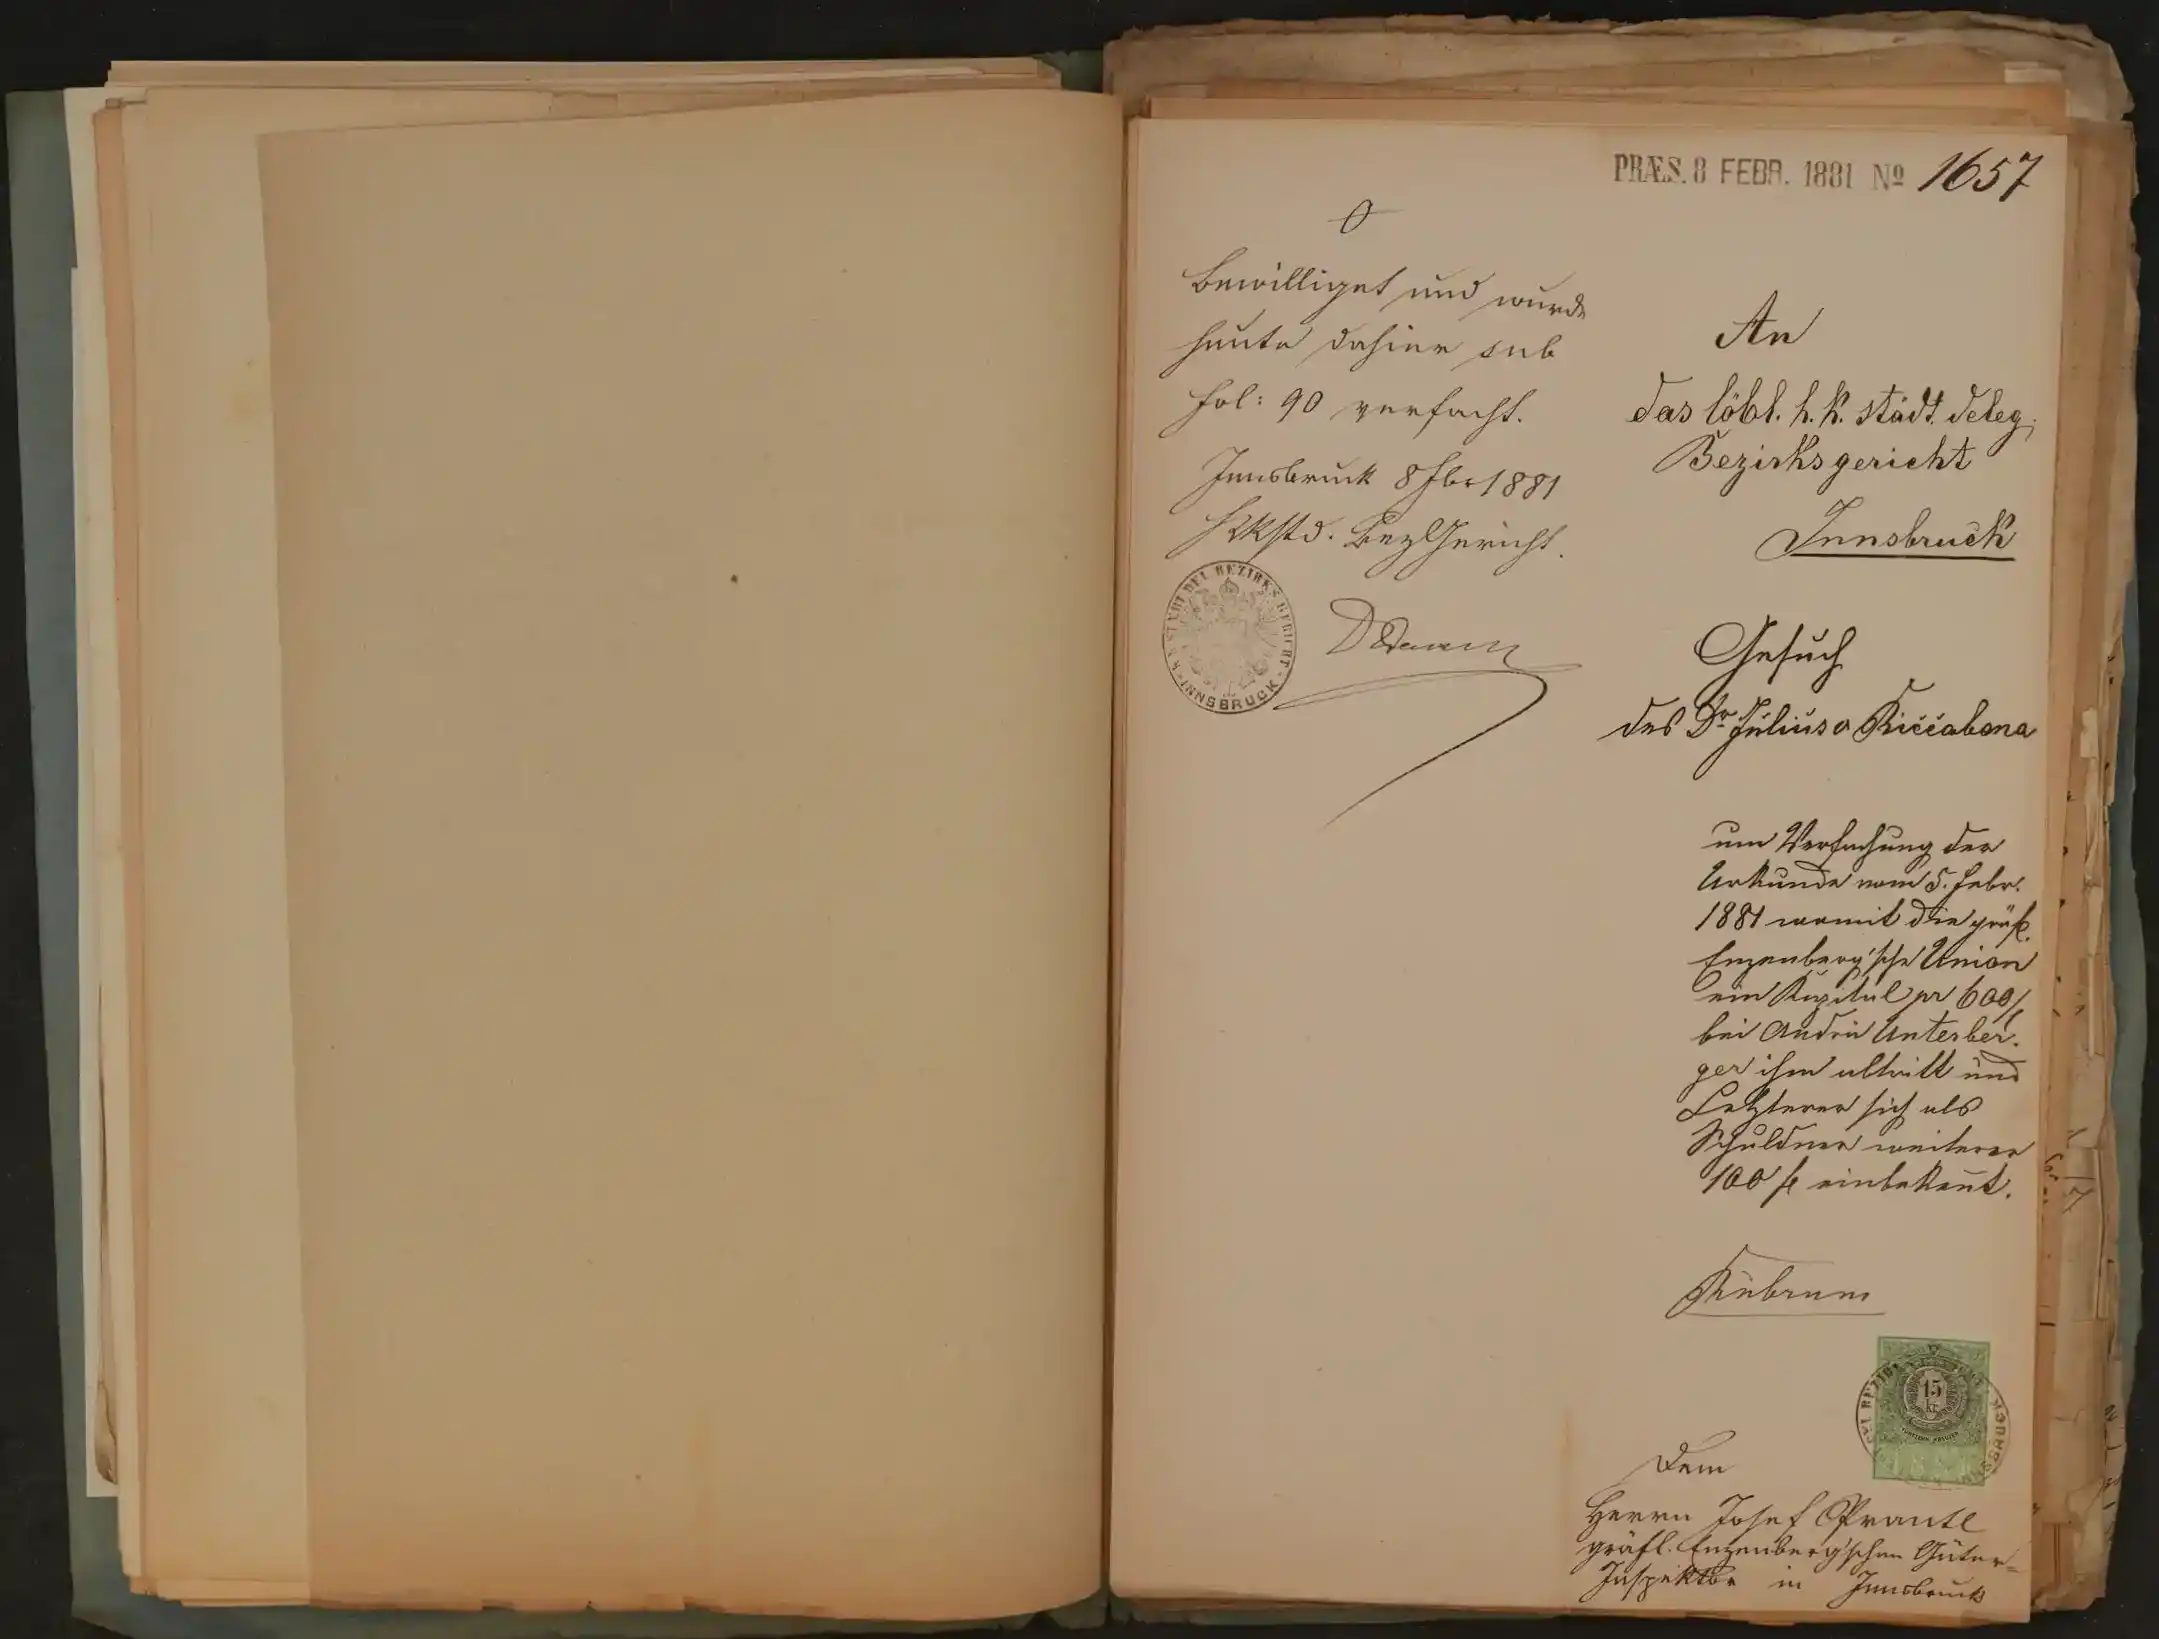 PRÆS. 8 FEBR. 1881 No 1657
Bewilliget und wurde
heute dahier sub
Fol: 90 verfacht.
Innsbruck 8 Fbr 1881
Bez Gericht.
INNSBRUCK
An
das löbl. k. k. städt. deleg.
Bezirksgericht
Innsbruck
Gesuch
des Dr Julius v Riccabona
um Verfachung der
Urkunde vom 5. Febr.
1881 womit die gräfl.
Enzenberg'sche Union
ein Kapital pr 600 f
bei Andrä Unterber-
ger ihm abtritt und
Letzterer sich als
Schuldner weiterer
100 f einbekennt.
Rubrum
15
kr.
FÜNFZEHN KREUZER
Dem
Herrn Josef Prantl
gräfl. Enzenberg'schen Güter-
Inspektor in Innsbruck